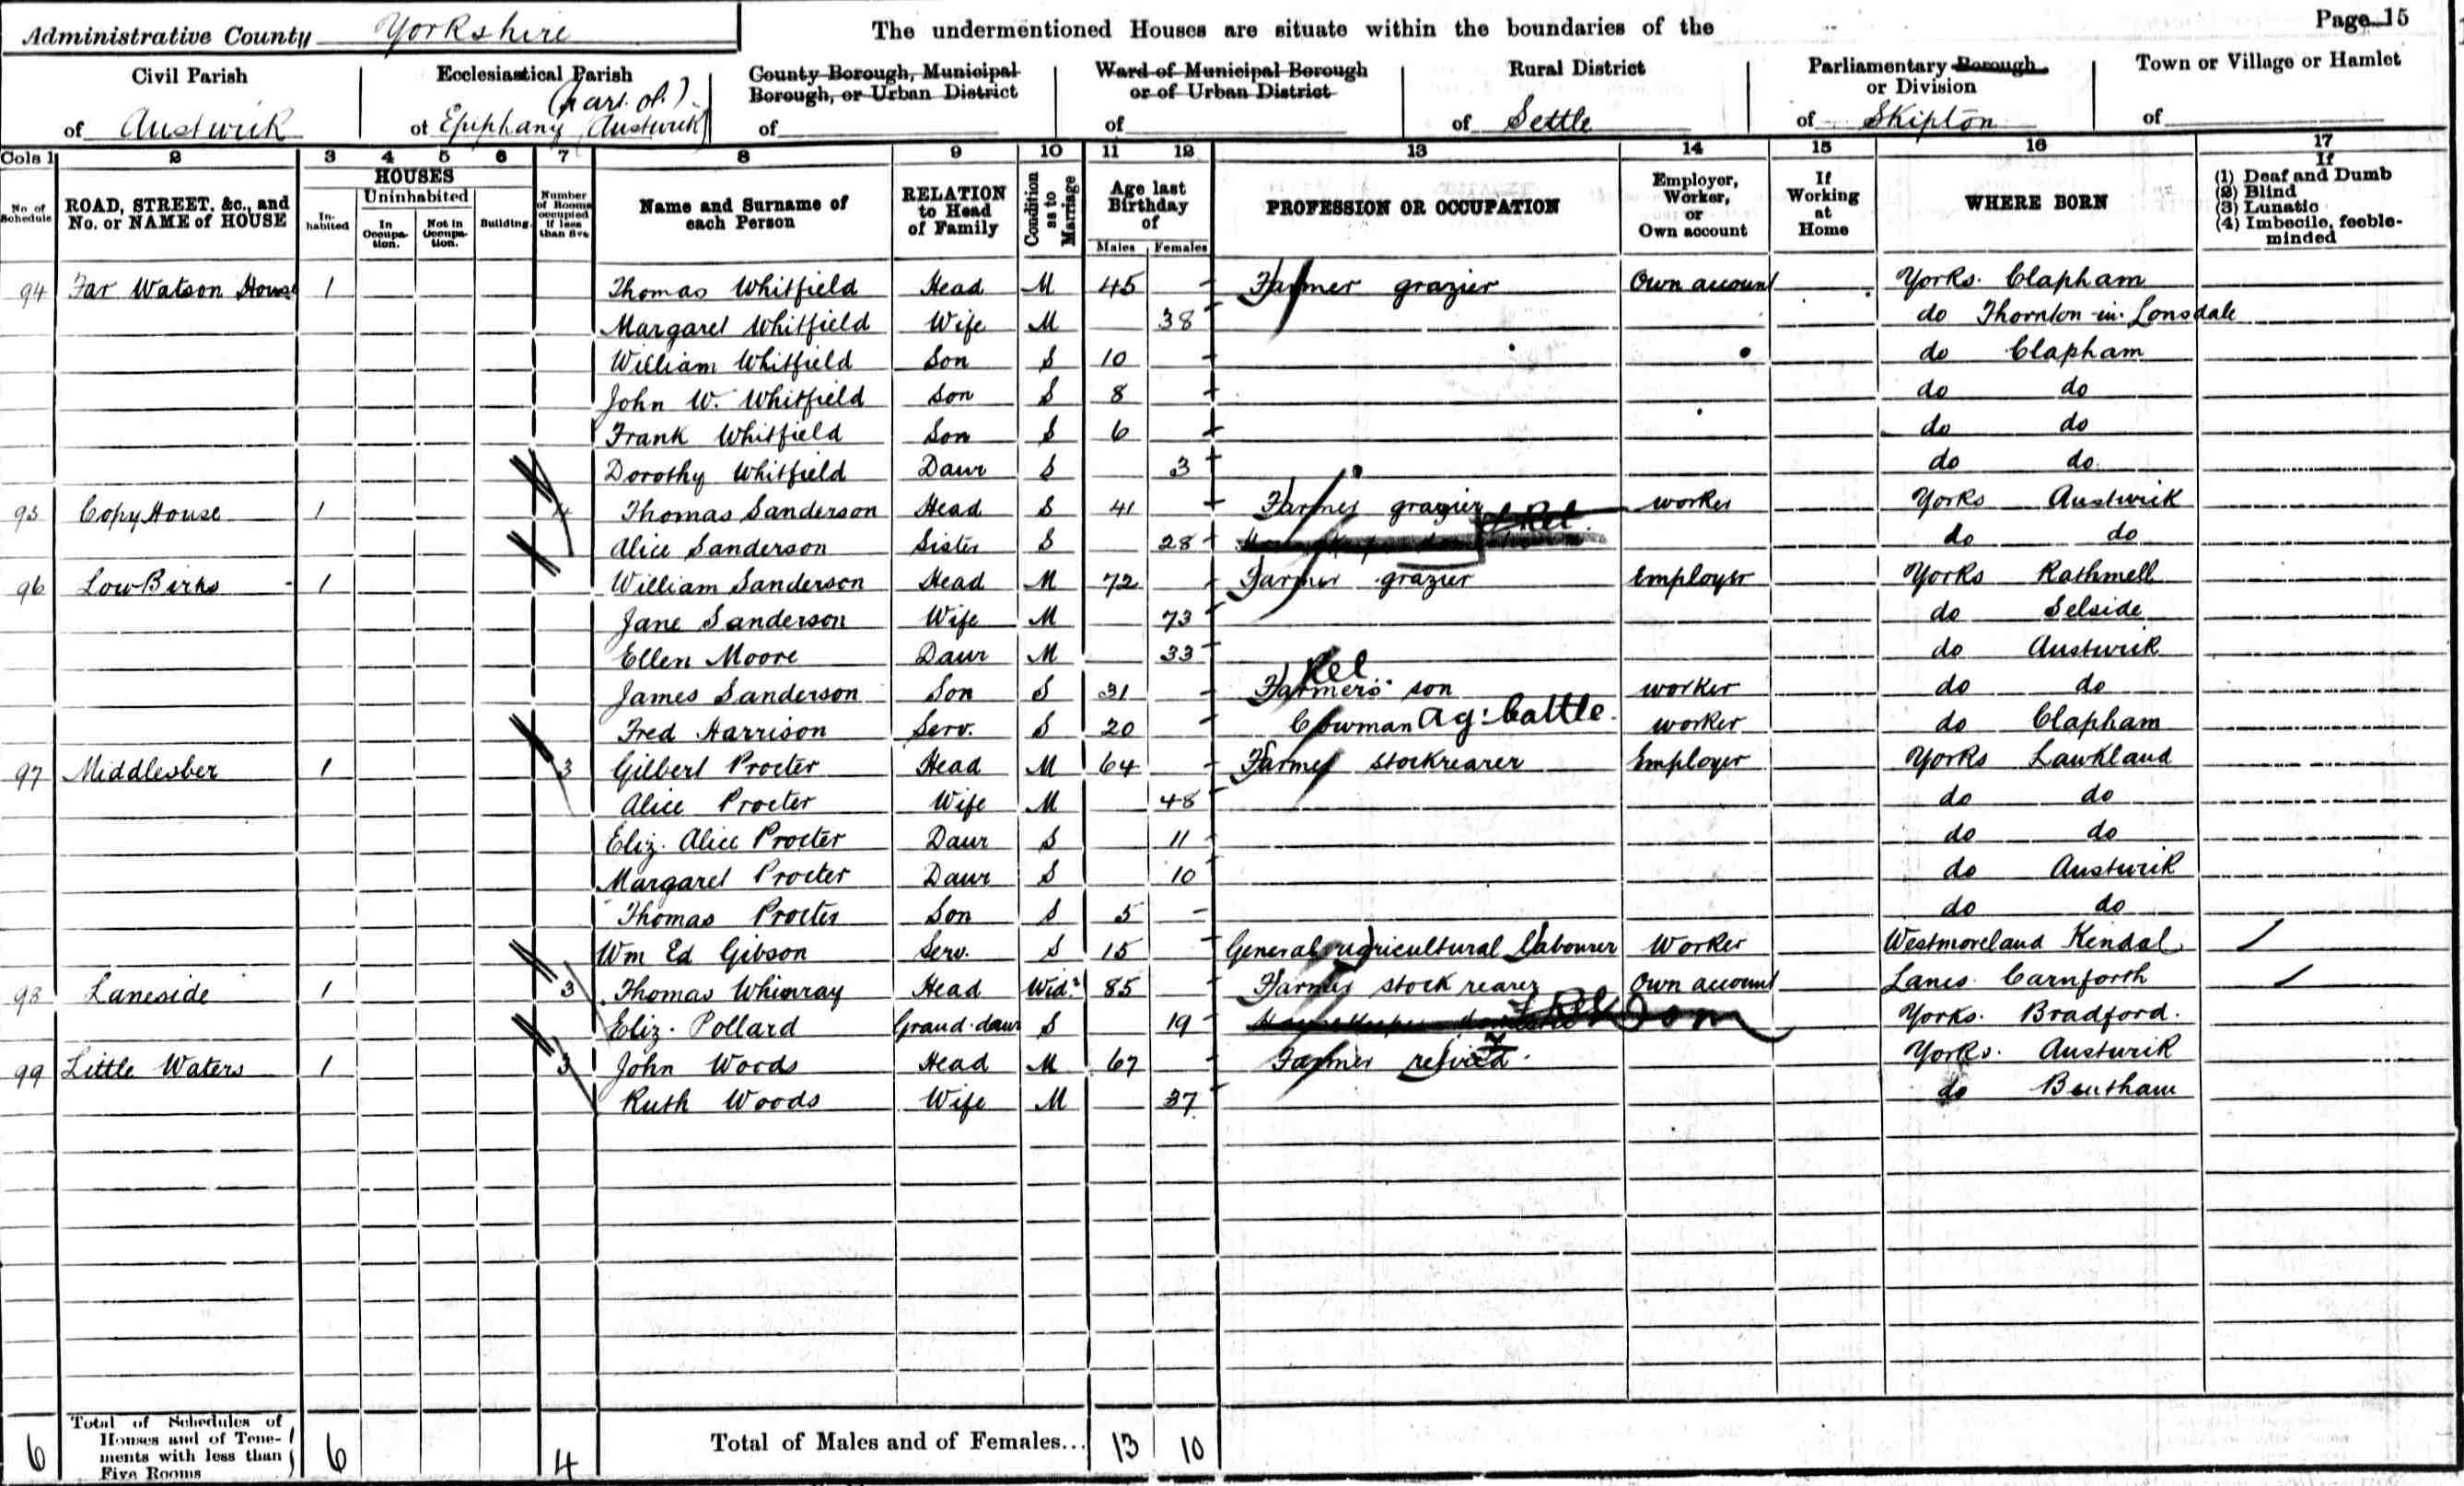 Page 15
Administrative County Yorkshire
The undermentioned Houses are situate within the boundaries of the
Civil Parish
of Austwick
Ecclesiastical Parish
(part of)
of Epiphany, Austwick
County Borough, Municipal
Borough, or Urban District
of
Ward of Municipal Borough
or of Urban District
of
Rural District
of Settle
Parliamentary Borough
or Division
of Skipton
Town or Village or Hamlet
of
Cols 1 2 3 4 5 6 7 8 9 10 11 12 13 14 15 16 17
No. of Schedule
ROAD, STREET, &c., and
No. or NAME of HOUSE
HOUSES
In-habited
Uninhabited
In Occupa-tion.
Not in Occupa-tion.
Building.
Number of Rooms occupied if less than five
Name and Surname of
each Person
RELATION
to Head
of Family
Condition as to Marriage
Age last
Birthday
of
Males Females
PROFESSION OR OCCUPATION
Employer,
Worker,
or
Own account
If
Working
at
Home
WHERE BORN
If
(1) Deaf and Dumb
(2) Blind
(3) Lunatic
(4) Imbecile, feeble-
minded
94 Far Watson House 1 Thomas Whitfield Head M 45 Farmer grazier Own account Yorks. Clapham
Margaret Whitfield Wife M 38 do Thornton-in-Lonsdale
William Whitfield Son S 10 do Clapham
John W. Whitfield Son S 8 do do
Frank Whitfield Son S 6 do do
Dorothy Whitfield Daur S 3 do do
95 Copy House 1 4 Thomas Sanderson Head S 41 Farmer grazier worker Yorks Austwick
Alice Sanderson Sister S 28 Rel. do do
96 Low Birks 1 William Sanderson Head M 72 Farmer grazier Employer Yorks Rathmell
Jane Sanderson Wife M 73 do Selside
Ellen Moore Daur M 33 do Austwick
James Sanderson Son S 31 Farmers son Rel worker do do
Fred Harrison Serv. S 20 Cowman Ag: Cattle. worker do Clapham
97 Middlesber 1 3 Gilbert Procter Head M 64 Farmer stockrearer Employer Yorks Lawkland
Alice Procter Wife M 48 do do
Eliz. Alice Procter Daur S 11 do do
Margaret Procter Daur S 10 do Austwick
Thomas Procter Son S 5 do do
Wm Ed Gibson Serv. S 15 General agricultural labourer Worker Westmoreland Kendal
98 Laneside 1 3 Thomas Whinray Head Widr 85 Farmer stock rearer Own account Lancs. Carnforth
Eliz. Pollard Grand-daur S 19 Housekeeper domestic Dom Yorks. Bradford.
99 Little Waters 1 3 John Woods Head M 67 Farmer retired. Yorks. Austwick
Ruth Woods Wife M 37 do Bentham
6 Total of Schedules of
Houses and of Tene-
ments with less than
Five Rooms 6 4 Total of Males and of Females... 13 10